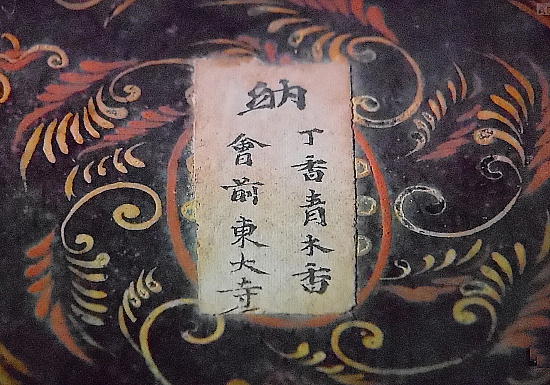 納
丁香青木香
會前東大寺